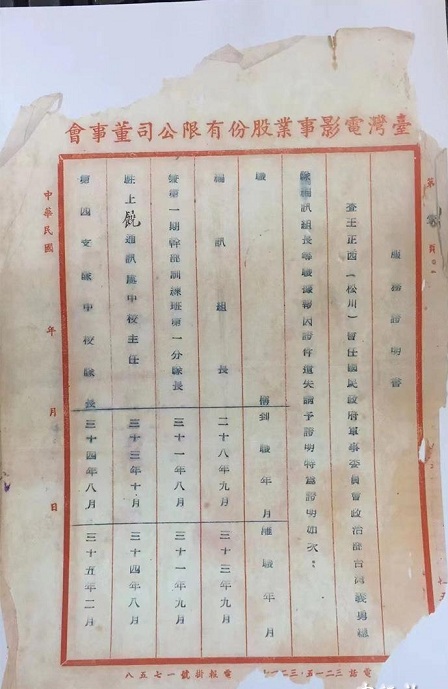 臺灣電影事業股份有限公司董事會
服務證明書
查王正西(松川)曾任國民政府軍事委員會政治部台灣義勇總
隊編訊組長等職據稱因證件遺失請予證明特為證明如次:
職 稱 到職年月 離職年月
編訊組長 二十八年九月 三十三年九月
第一期幹部訓練班第一分隊長 三十一年八月 三十一年九月
駐上饒通訊處中校主任 三十三年十月 三十四年八月
第四支隊中校隊長 三十四年八月 三十五年二月
中華民國 年 月 日
電報掛號一七五八